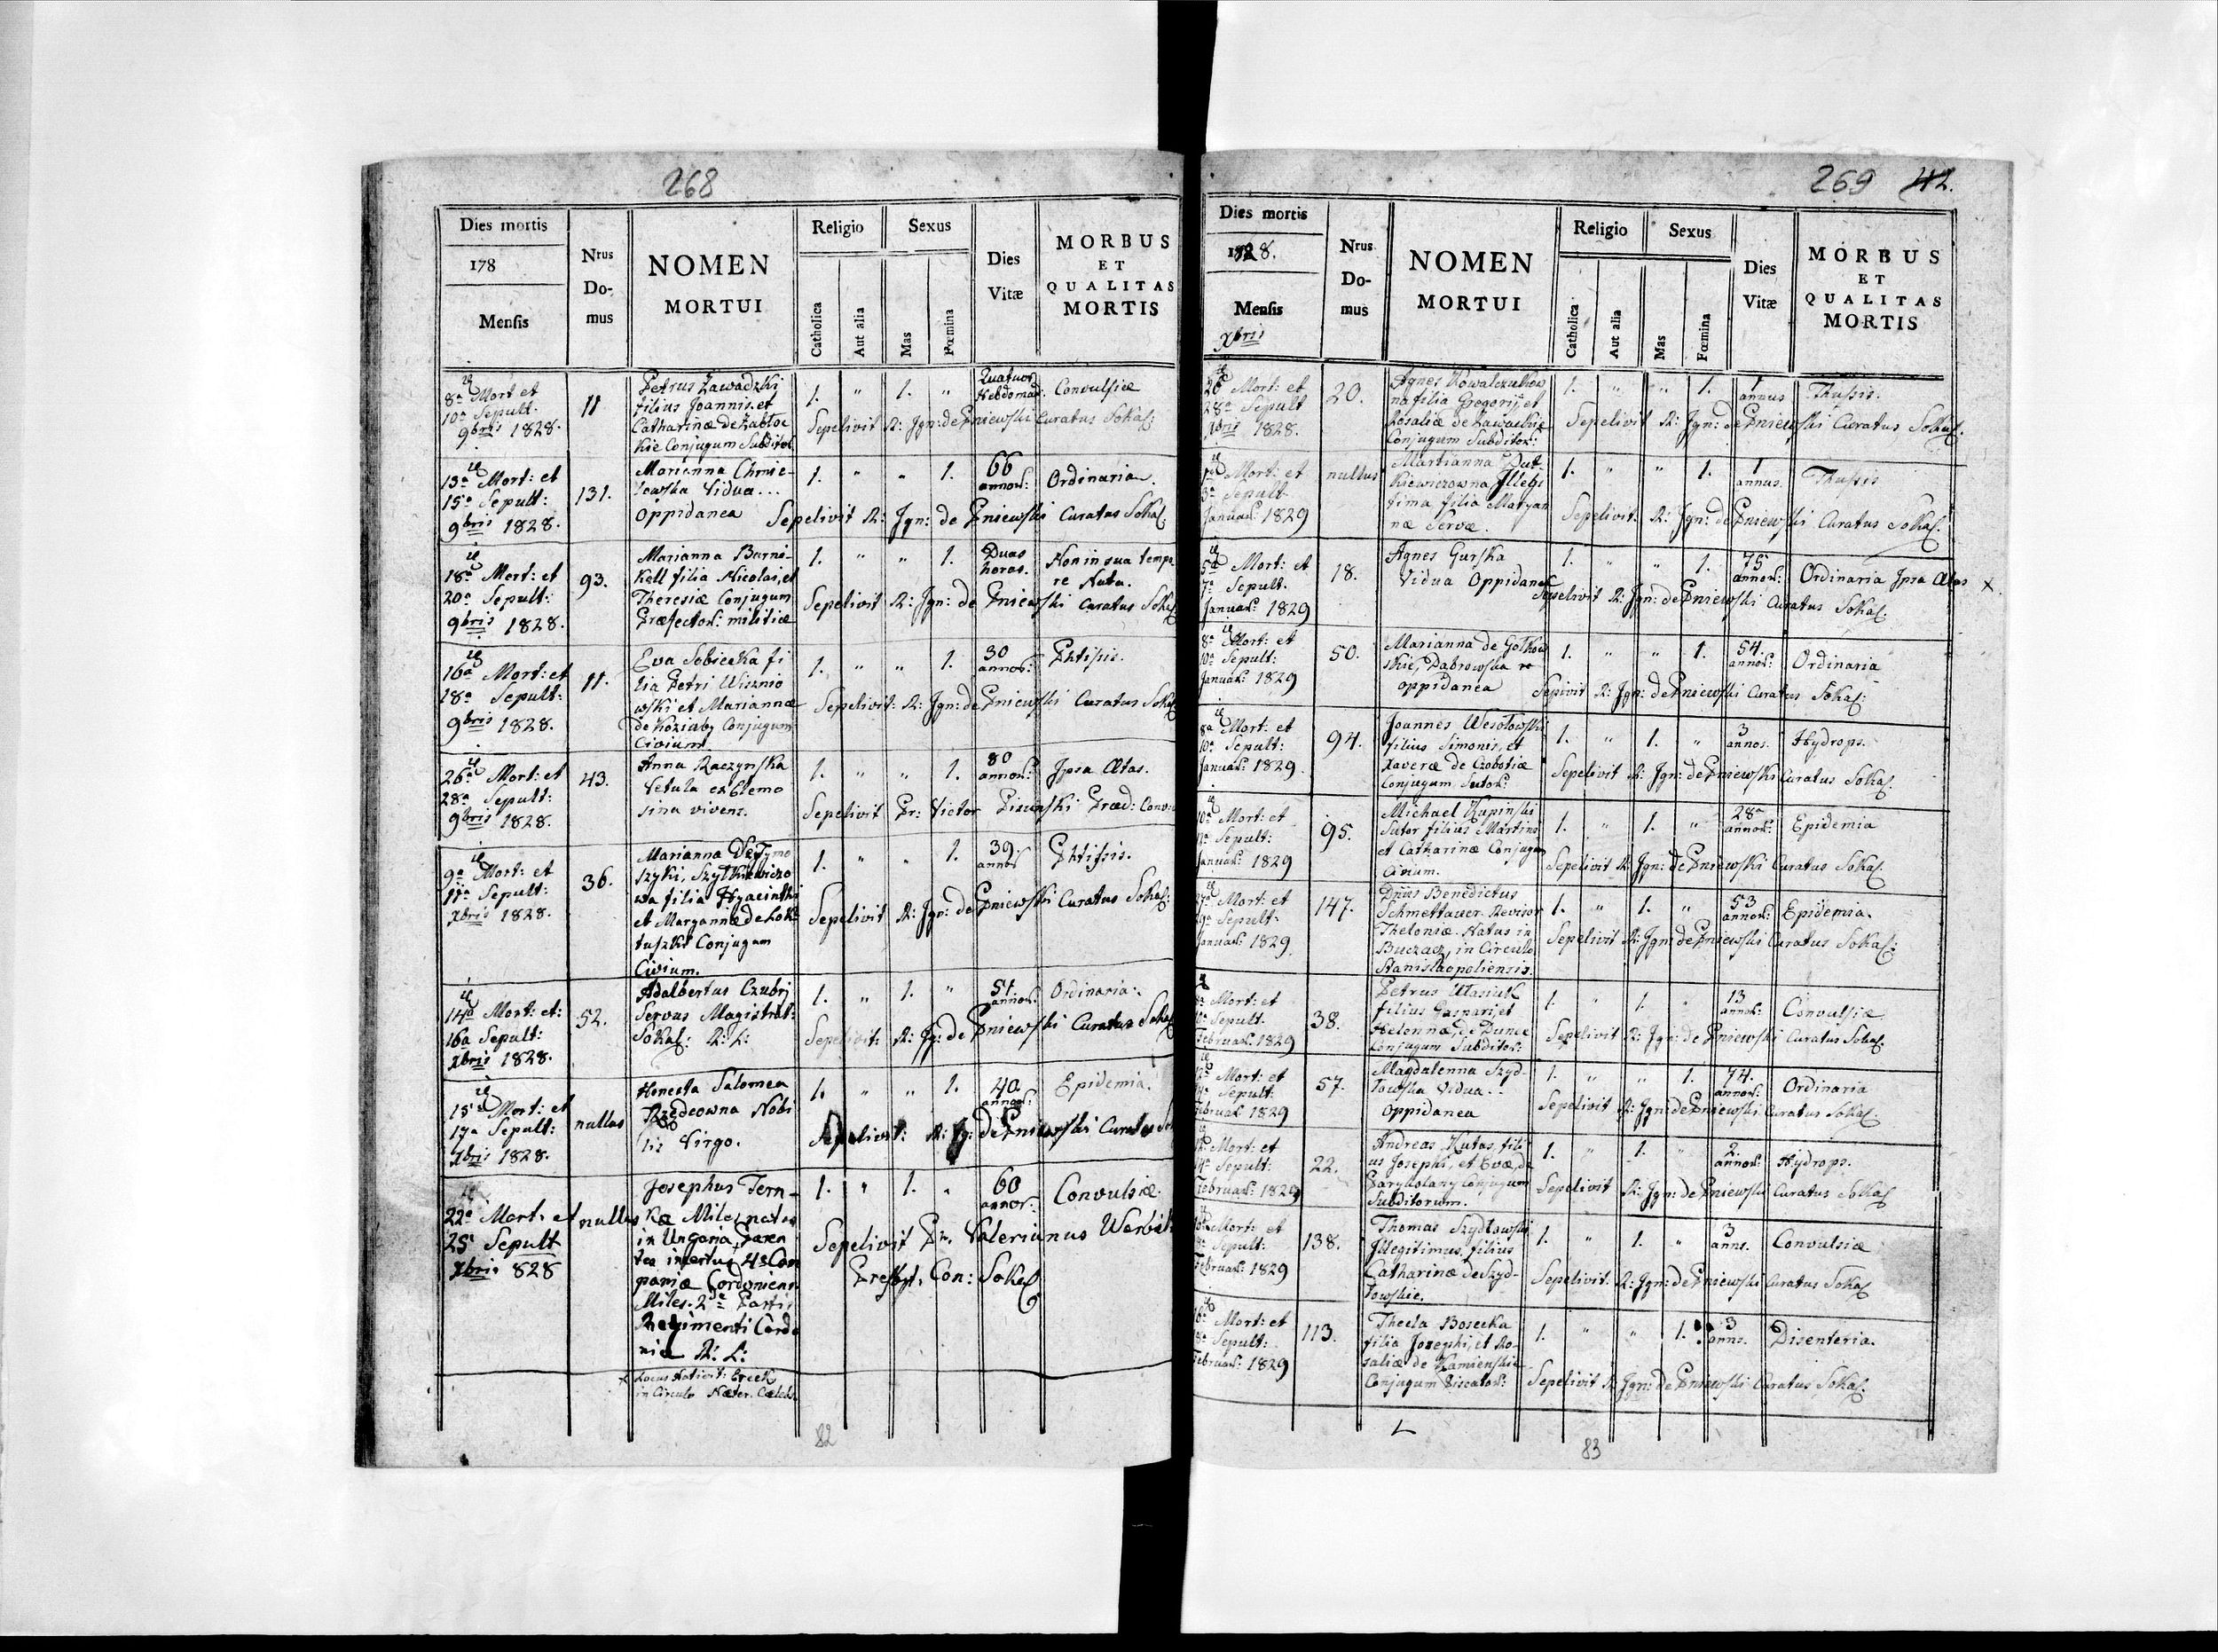 268
Dies mortis
178
Mensis
Nrus
Do-
mus
NOMEN
MORTUI
Religio
Catholica
Aut alia
Sexus
Mas
Fœmina
Dies
Vitæ
MORBUS
ET
QUALITAS
MORTIS
8a Mort et
10a Sepult.
9bris 1828.
11
Petrus Zawadzki
filius Joannis et
Catharinæ de Zabłoc
kie Conjugum Subditor
1. " 1. "
Quatuor
Hebdomad.
Convulsiæ
Sepelivit R: Jgn: de Pniewski Curatus Sokal:
13a Mort: et
15a Sepult:
9bris 1828.
131.
Marianna Chmie-
lowska Vidua...
Oppidanea
1. " " 1.
66
annor:
Ordinaria.
Sepelivit R: Jgn: de Pniewski Curatus Sokal:
18a Mort: et
20a Sepult:
9bris 1828.
93.
Marianna Burni-
kell filia Nicolai, et
Theresiæ Conjugum
Præfector: militiæ
1. " " 1.
Duas
horas.
Non in sua tempo
re Nata.
Sepelivit R: Jgn: de Pniewski Curatus Sokal
16a Mort: et
18a Sepult:
9bris 1828.
11.
Eva Sobiecka fi
lia Petri Wisznio
wski et Mariannæ
de Conjugum
Civium
1. " " 1.
30
annor:
Phtisis.
Sepelivit: R: Jgn: de Pniewski Curatus Sokal
26a Mort: et
28a Sepult:
9bris 1828.
43.
Anna Raczynska
Vetula ex Elemo
sina vivens.
1. " " 1.
80
annor:
Jpsa Ætas.
Sepelivit Pr: Victor Præd: Conv:
9a Mort: et
11a Sepult:
Xbris 1828.
36.
Marianna
Szytkiewiczo
wa filia Hyacinthi
et Maryannæ de
Conjugum
Civium.
1. " " 1.
39
annor
Phtisis.
Sepelivit R: Jgn: de Pniewski Curatus Sokal:
14a Mort: et:
16a Sepult:
Xbris 1828.
52.
Adalbertus Czubrj
Servus Magistrat:
Sokal: R: L:
1. " 1. "
51
annor:
Ordinaria.
Sepelivit: R: Jg: de Pniewski Curatus Sokal
15a Mort: et
17a Sepult:
Xbris 1828.
nullus
Honesta Salomea
Nobi
lis Virgo.
1. " " 1.
40
annor:
Epidemia.
Sepelivit: R: Jg: de Pniewski Curatus Sok
22a Mort: et
25a Sepult
Xbris 828
nullus
Josephus Tern-
kæ Miles natus
in Ungaria, Paren
tes incertus 4æ Com
paniæ Cordoniens
Miles. 2dæ Partis
Regimenti Cordo
niæ R: L:
1. " 1. "
60
annor:
Convulsiæ.
Sepelivit Pr. Valerianus
Presbyt. Con: Sokal
Locus Nativit:
in Circulo
82
269 42.
Dies mortis
1828.
Mensis
Xbris
Nrus
Do-
mus
NOMEN
MORTUI
Religio
Catholica
Aut alia
Sexus
Mas
Fœmina
Dies
Vitæ
MORBUS
ET
QUALITAS
MORTIS
26a Mort: et
28a Sepult
Xbris 1828.
20.
Agnes Kowalczukow
na filia Gregorij, et
Rosaliæ de
Conjugum Subditor:
1. " " 1.
1
annus
Thussis.
Sepelivit R: Jgn: de Pniewski Curatus Sokal.
1a Mort: et
3a Sepult
Januar: 1829
nullus
Martianna Dut-
kiewiczowna Jllegi
tima filia Maryan
næ Servæ.
1. " " 1.
1
annus.
Thussis
Sepelivit: R: Jgn: de Pniewski Curatus Sokal.
5a Mort: et
7a Sepult.
Januar: 1829
18.
Agnes Gurska
Vidua Oppidanea
1. " " 1.
75
annor:
Ordinaria Jpsa Ætas ×
Sepelivit R: Jgn: de Pniewski Curatus Sokal:
8a Mort: et
10a Sepult:
Januar: 1829
50.
Marianna de Gołkow
skie, Dabrowska
oppidanea
1. " " 1.
54.
annor:
Ordinaria
Sepivit R: Jgn: de Pniewski Curatus Sokal:
8a Mort: et
10a Sepult:
Januar: 1829
94.
Joannes Wesołowski
filius Simonis, et
Xaveræ de
Conjugum Sutor:
1. " 1. "
3
annos.
Hydrops.
Sepelivit R: Jgn: de Pniewski Curatus Sokal.
Mort: et
Sepult:
Januar: 1829
95.
Michael Kupinski
Sutor filius Martini
et Catharinæ Conjugum
Civium.
1. " 1. "
28a
annor:
Epidemia
Sepelivit R: Jgn: de Pniewski Curatus Sokal.
Mort: et
Sepult.
Januar: 1829
147.
Dnus Benedictus
Schmettauer Revisor
Thelonræ. Natus in
Buczacz, in Circulo
Stanislaopoliensis.
1. " 1. "
53
annor:
Epidemia.
Sepelivit R: Jgn: de Pniewski Curatus Sokal:
Mort: et
Sepult.
Februar: 1829
38.
Petrus Ułasiuk
filius Gaspari, et
Helennæ, de Dunce
Conjugum Subditor:
1. " 1. "
13
annor:
Convulsiæ
Sepelivit R: Jgn: de Pniewski Curatus Sokal.
Mort: et
Sepult:
Februar: 1829
57.
Magdalenna Szyd-
łowska Vidua..
Oppidanea
1. " " 1.
74.
annor:
Ordinaria
Sepelivit R: Jgn: de Pniewski Curatus Sokal.
Mort: et
Sepult:
Februar: 1829
22.
Andreas Kutas fili
us Josephi, et Evæ, de
Conjugum
Subditorum.
1. " 1. "
2.
annor:
Hydrops.
Sepelivit R: Jgn: de Pniewski Curatus Sokal
Mort: et
Sepult:
Februar: 1829
138.
Thomas Szydłowski
Jllegitimus filius
Catharinæ de Szyd-
łowskie.
1. " 1. "
3
anns.
Convulsiæ
Sepelivit. R: Jgn: de Pniewski Curatus Sokal
Mort: et
Sepult:
Februar: 1829
113.
Thecla Bosecka
filia Josephi, et Ro-
saliæ de Kamienskie
Conjugum Piscator:
1. " " 1.
3
anns.
Disenteria.
Sepelivit R: Jgn: de Pniewski Curatus Sokal.
83